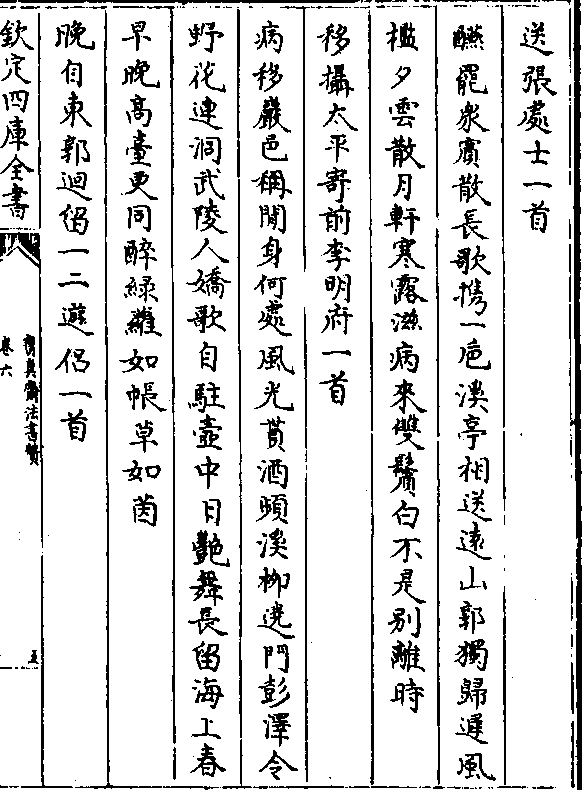 送張處士一首
醼罷衆賓散長歌携一巵溪亭相送遠山郭獨歸遲風
檻夕雲散月軒寒露滋病來雙鬢白不是别離時
移攝太平寄前李明府一首
病移巖邑稱閒身何處風光貰酒頻溪栁遶門彭澤令
野花連洞武陵人嬌歌自駐壺中日艷舞長留海上春
早晩髙臺更同醉綠蘿如帳草如茵
晚自東郭迴留一二遊侣一首
欽定四庫全書
寳真齋法書賛
卷六
五